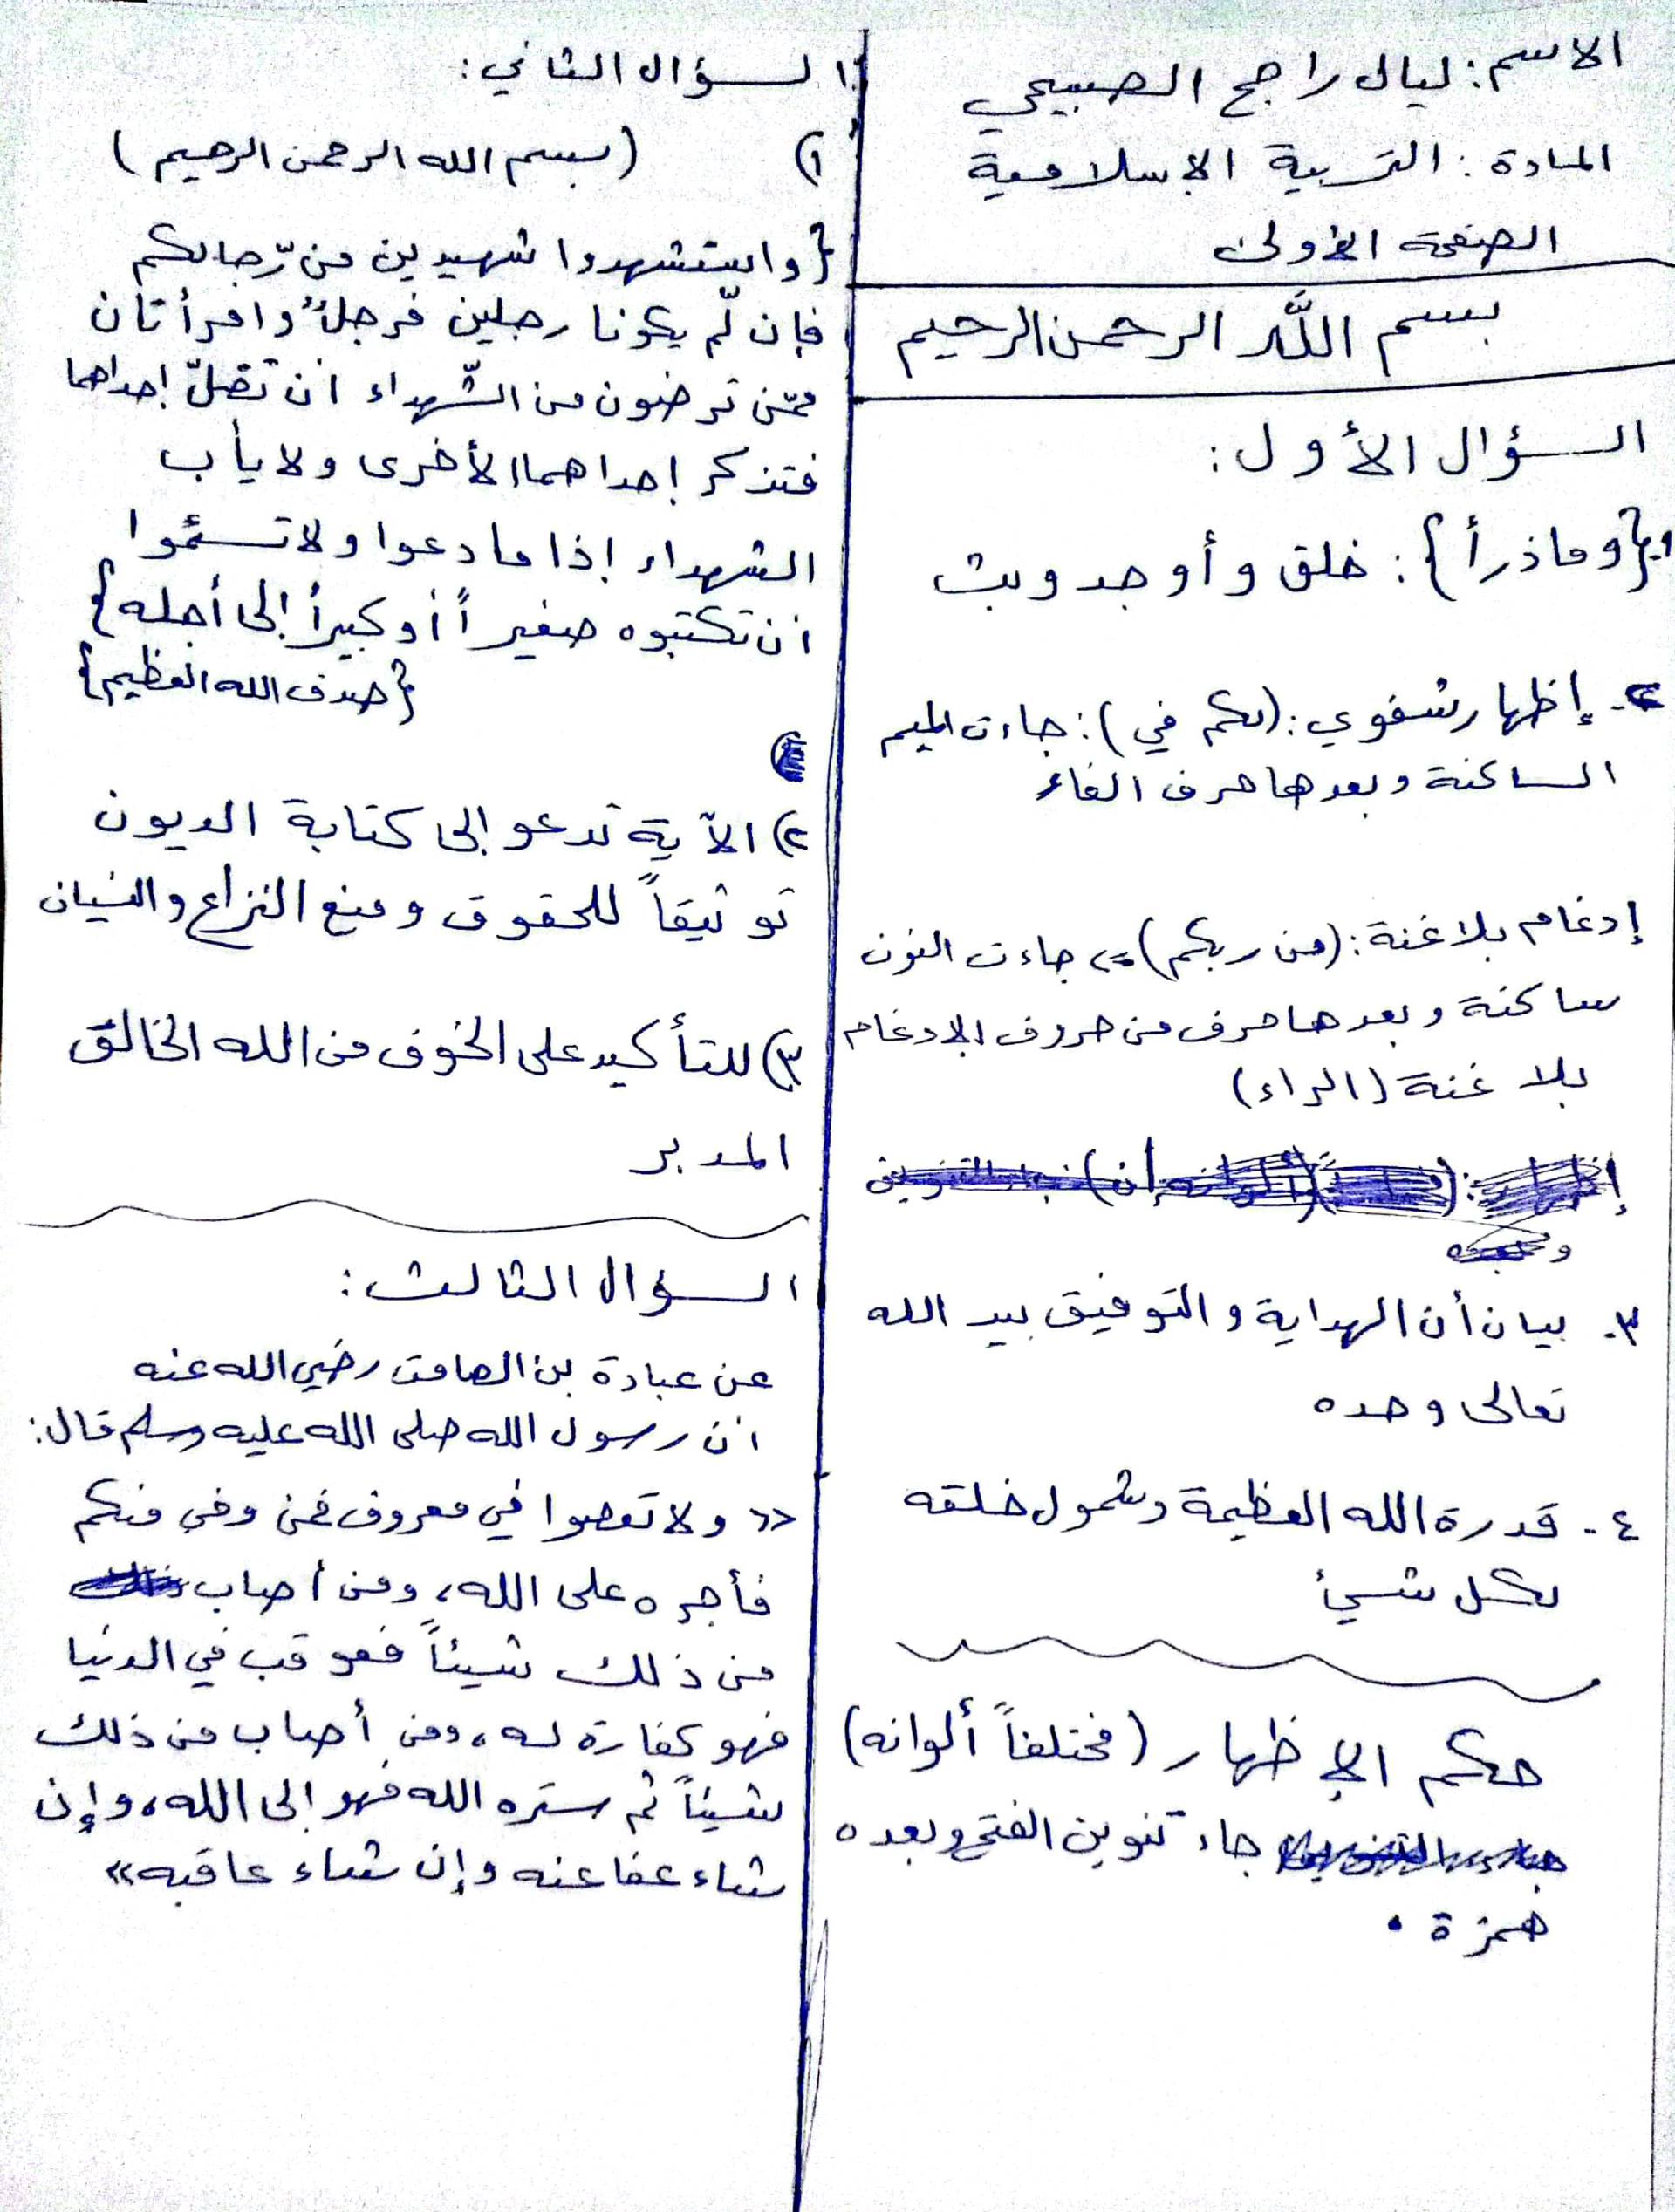 الاسم: ليال راجح الصبيحي
المادة: التربية الإسلامية
الصفحة الأولى
بسم اللَّه الرحمن الرحيم
السؤال الأول:
١. {وما ذرأ}: خلق وأوجد وبث
٢. إظهار شفوي: (لكم في): جاءت الميم
الساكنة وبعدها حرف الفاء
إدغام بلا غنة: (من ربكم) => جاءت النون
ساكنة وبعدها حرف من حروف الإدغام
بلا غنة (الراء)
٣. بيان أن الهداية والتوفيق بيد الله
تعالى وحده
٤. قدرة الله العظيمة وشمول خلقه
لكل شيئ
حكم الإظهار (مختلفاً ألوانه)
جاء تنوين الفتح وبعده
همزة.
السؤال الثاني:
١) (بسم الله الرحمن الرحيم)
{واستشهدوا شهيدين من رّجالكم
فإن لّم يكونا رجلين فرجلٌ وامرأتان
ممّن ترضون من الشّهداء ان تضلّ إحداهما
فتذكر إحداهما الأخرى ولا يأب
الشهداء إذا ما دعوا ولا تسئموا
ان تكتبوه صغيراً أو كبيراً إلى أجله}
{صدق الله العظيم}
٢) الآية تدعو إلى كتابة الديون
توثيقاً للحقوق ومنع النزاع والنسيان
٣) للتأكيد على الخوف من الله الخالق
المدبر
السؤال الثالث:
عن عبادة بن الصامت رضي الله عنه
ان رسول الله صلى الله عليه وسلم قال:
«ولا تعصوا في معروف فمن وفى منكم
فأجره على الله، ومن أصاب
من ذلك شيئاً فعوقب في الدنيا
فهو كفارة له، ومن أصاب من ذلك
شيئاً ثم ستره الله فهو إلى الله، وإن
شاء عفا عنه وإن شاء عاقبه»